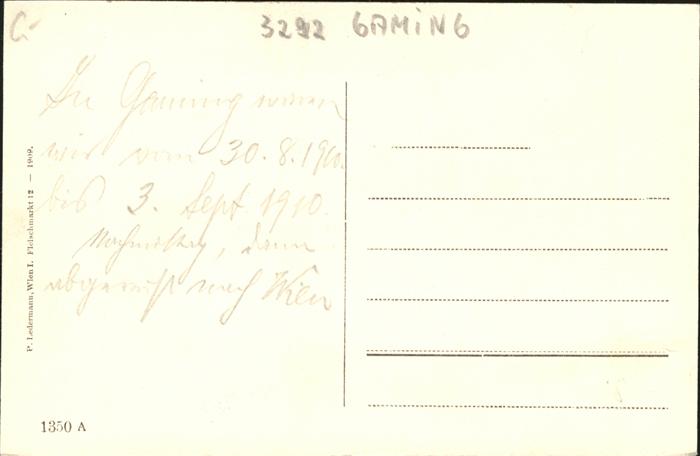 3292 GAMING
In Gaming waren
wir vom 30.8.1910.
bis 3. Sept. 1910.
Nachmittag, dann
abgereist nach Wien
P. Ledermann, Wien I. Fleischmarkt 12 — 1909.
1350 A